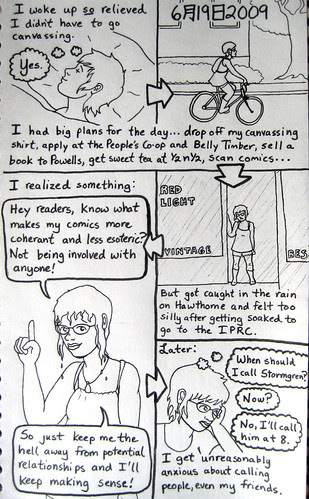 I woke up so relieved
I didn't have to go
canvassing.
Yes.
6月19日2009
I had big plans for the day... drop off my canvassing
shirt, apply at the People's Co-op and Belly Timber, sell a
book to Powells, get sweet tea at YanYz, scan comics...
RED
LIGHT
VINTAGE
RES
But got caught in the rain
on Hawthorne and felt too
silly after getting soaked to
go to the IPRC.
I realized something:
Hey readers, know what
makes my comics more
coherent and less esoteric?
Not being involved with
anyone!
So just keep me the
hell away from potential
relationships and I'll
keep making sense!
Later:
When should
I call Stormgren?
Now?
No, I'll call
him at 8.
I get unreasonably
anxious about calling
people, even my friends.